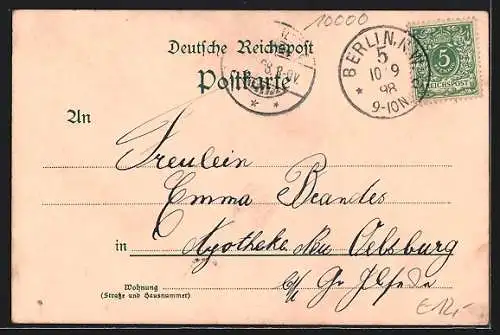 10000
Deutsche Reichspost
Postkarte
BERLIN. N.W.
5
10 9
98
9-10N.
5
REICHSPOST
An
Freulein
Emma Brandes
in Apotheke Neu Oelsburg
b/ Gr Ilsede
Wohnung
(Straße und Hausnummer)
€12,-